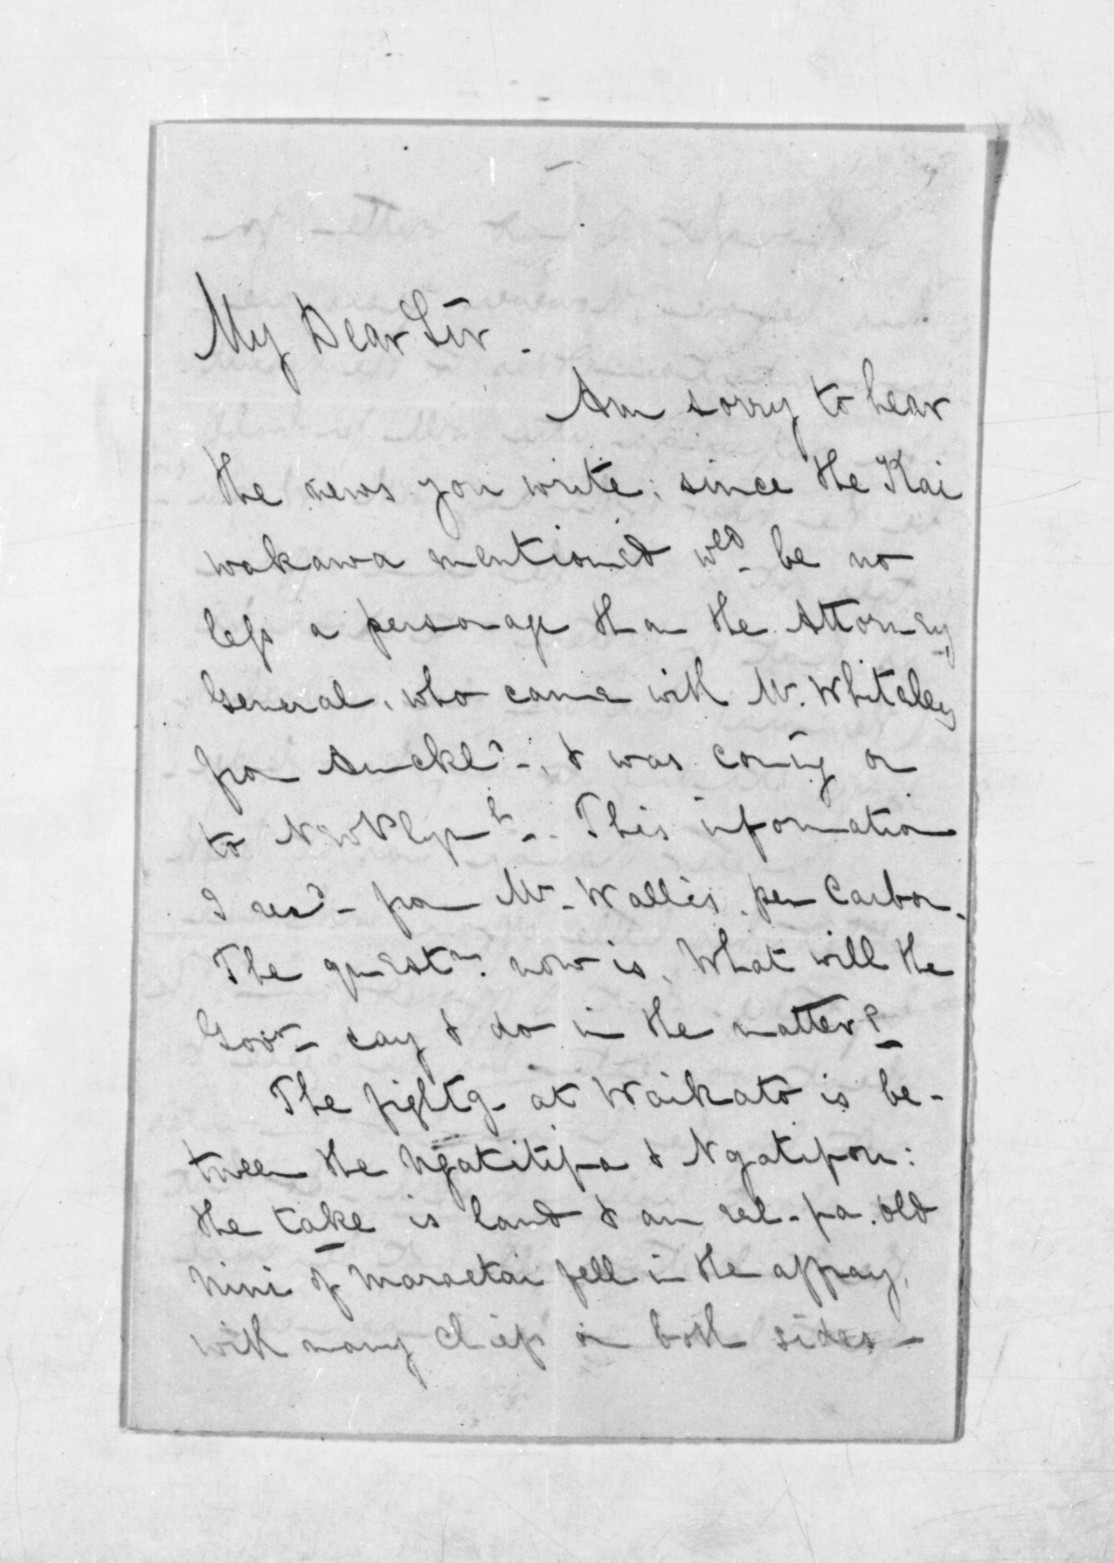 My Dear Sir.
Am sorry to hear
the news you write: since the Kai
wakawa mentioned wed. be no
less a personage than the Attorney
General, who came with Mr. Whiteley
from Auckld-; & was coming on
to New Plymth-. This information
I recd- from Mr- Wallis. per Carbon.
The questn. now is, What will the
Govr- say & do in the matter?
The fightg- at Waikato is be-
tween the Ngatitipa & Ngatipou:
the take is land & an eel-pa. Old
Nini of Maraetai fell in the affray,
with many chiefs on both sides-